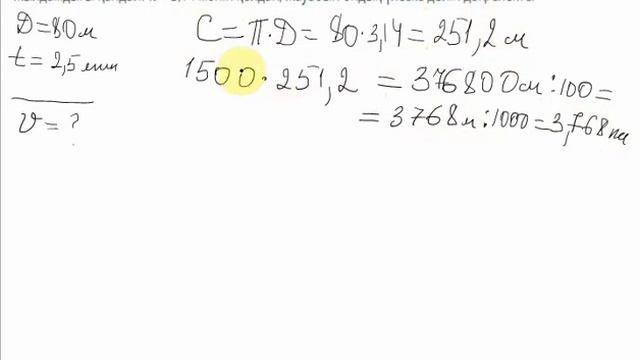 D = 80 м
t = 2,5 мин
v = ?
C = П·D = 80·3,14 = 251,2 м
1500·251,2 = 376800 см : 100 =
= 3768 м : 1000 = 3,768 км